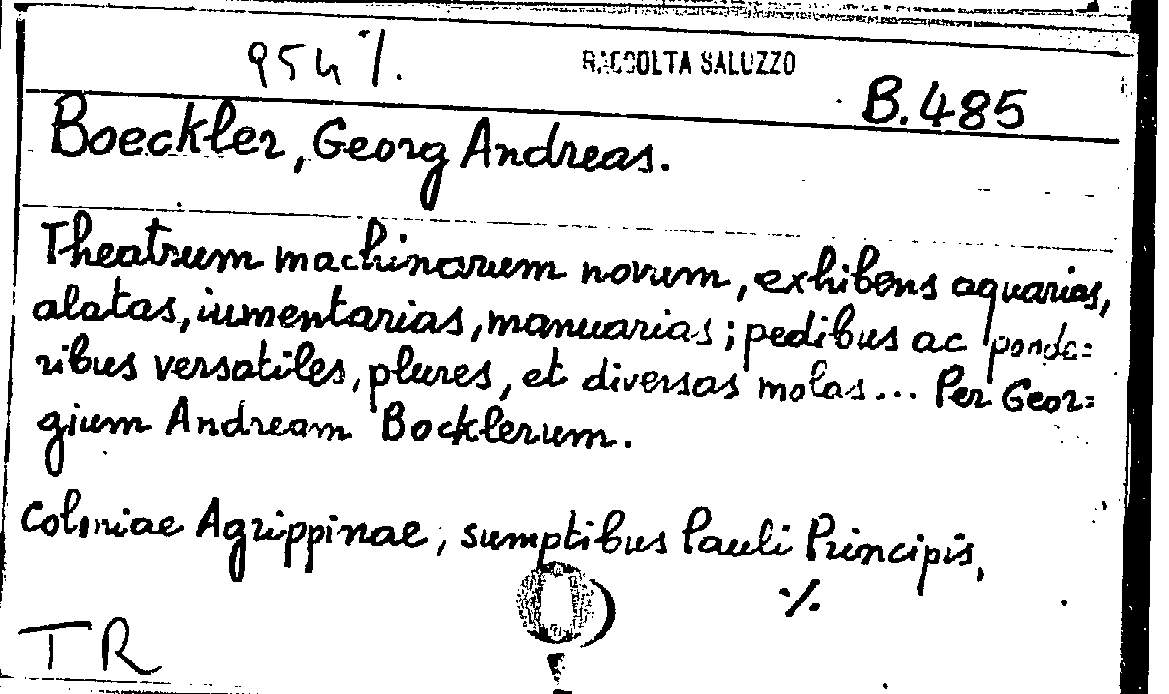 954 ./.
RACCOLTA SALUZZO
B.485
Boeckler, Georg Andreas.
Theatrum machinarum novum, exhibens aquarias,
alatas, iumentarias, manuarias; pedibus ac ponde=
ribus versatiles, plures, et diversas molas... Per Geor=
gium Andream Bocklerum.
Coloniae Agrippinae, sumptibus Pauli Principis,
./.
TR